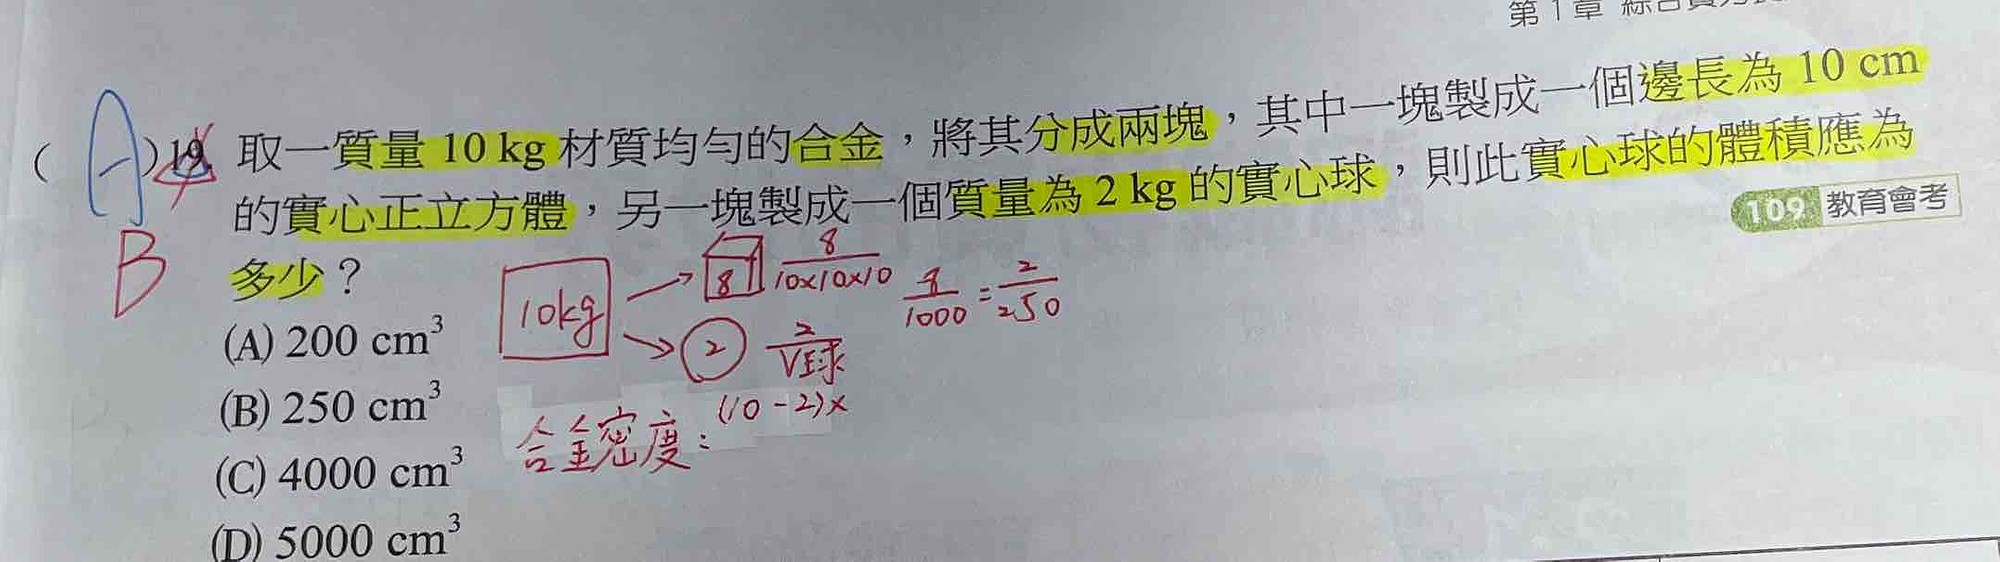 第 1 章
( A )19. 取一質量 10 kg 材質均勻的合金，將其分成兩塊，其中一塊製成一個邊長為 10 cm
的實心正立方體，另一塊製成一個質量為 2 kg 的實心球，則此實心球的體積應為
多少？
109 教育會考
B
(A) 200 cm³
(B) 250 cm³
(C) 4000 cm³
(D) 5000 cm³
10kg
8
8/10×10×10
8/1000 = 2/250
2
2/V球
合金密度：(10-2)×